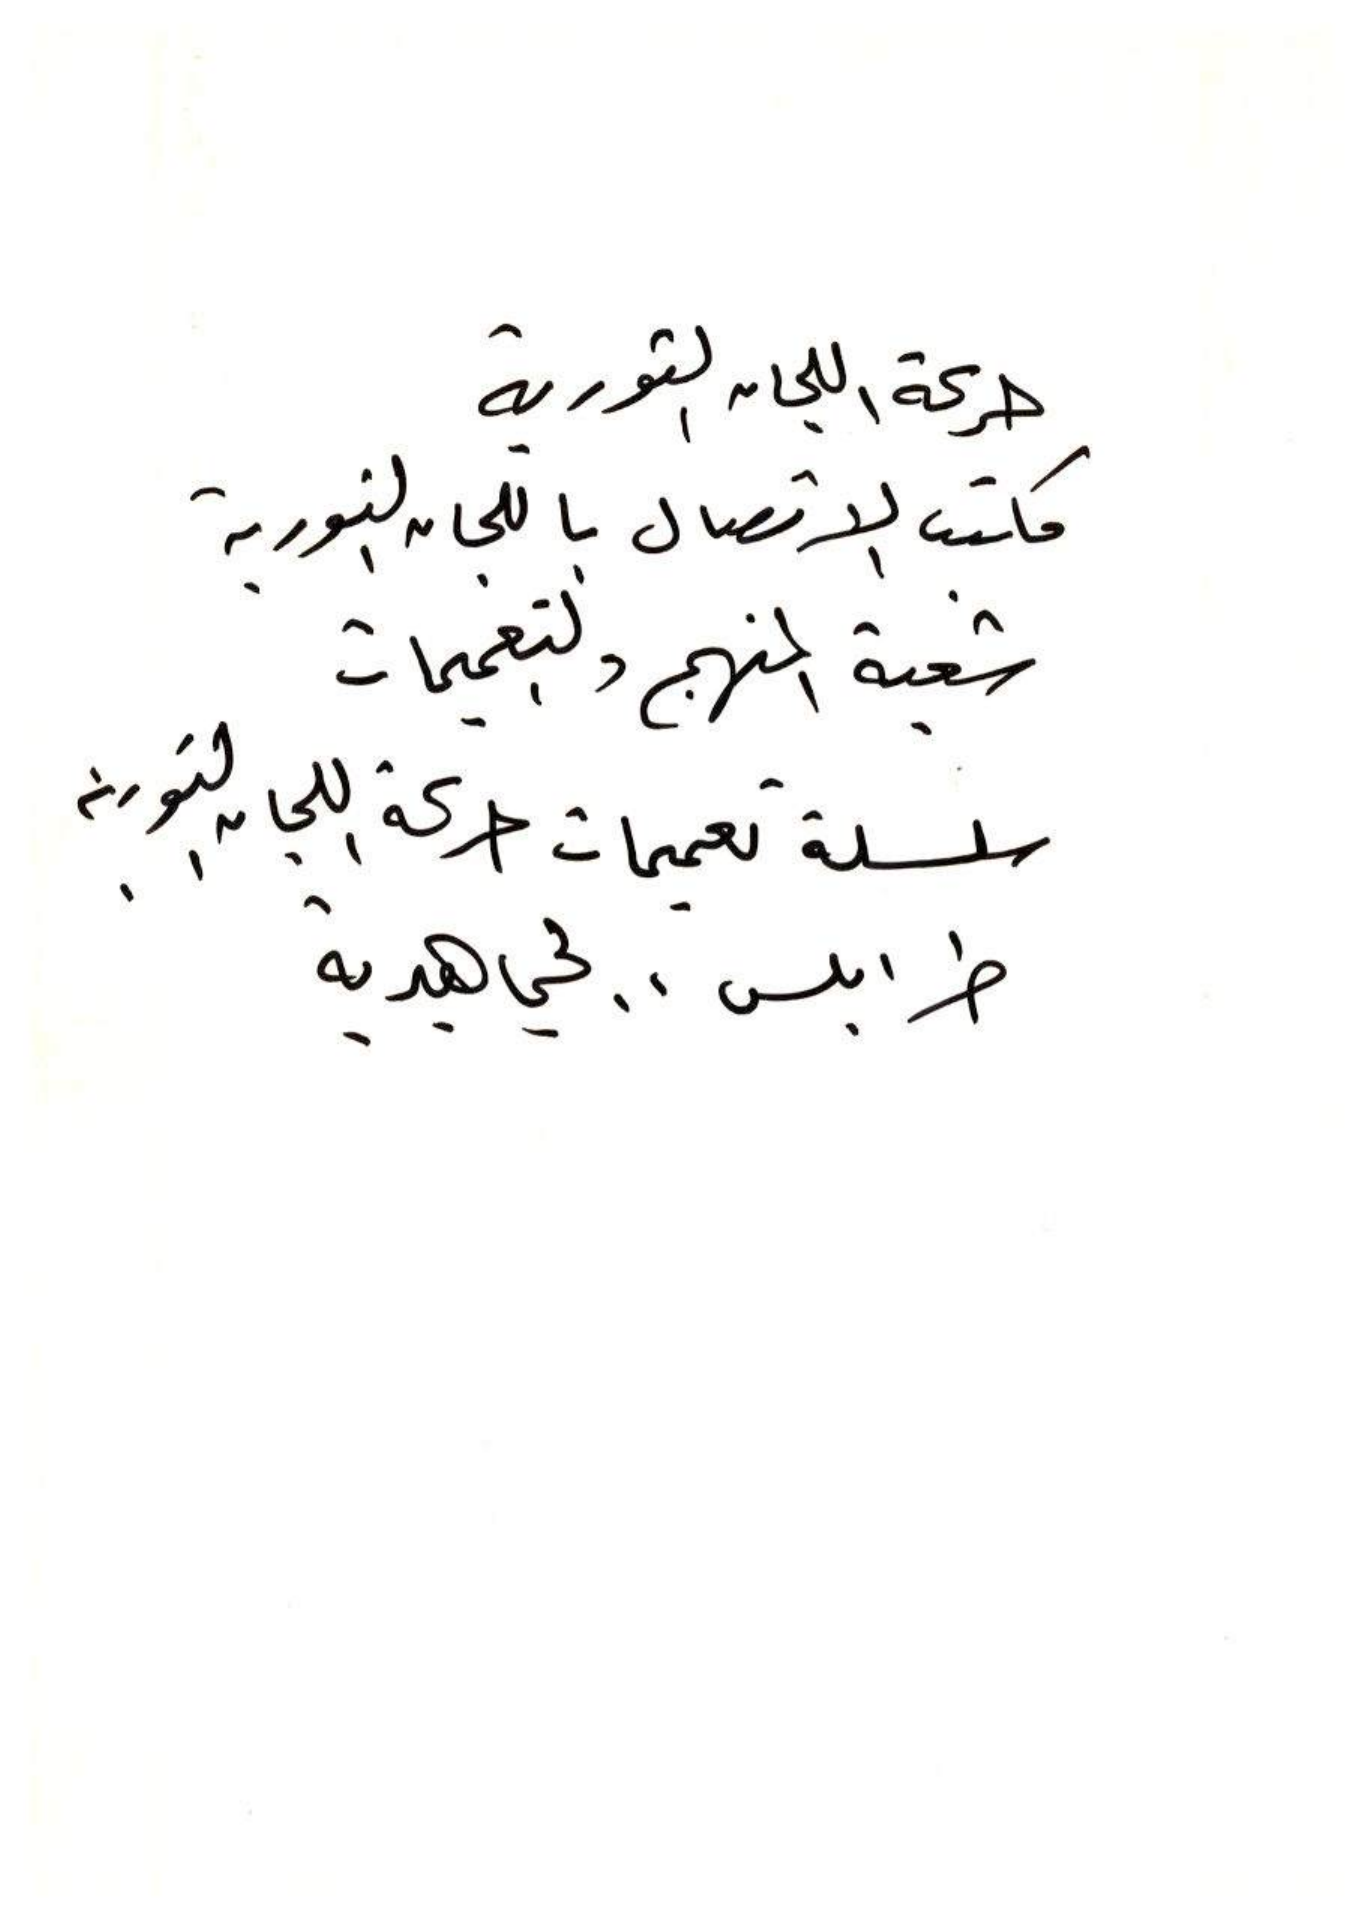 حركة اللجان الثورية
مكتب الاتصال باللجان الثورية
شعبة المنهج والتعميمات
سلسلة تعميمات حركة اللجان الثورية
طرابلس ..